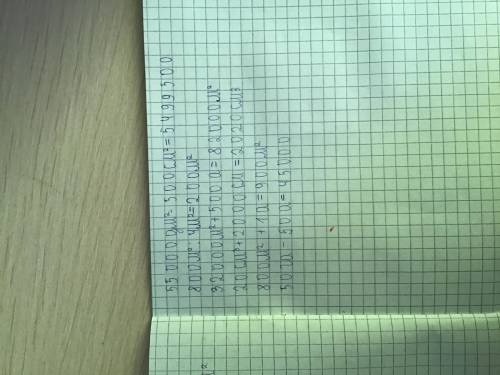 55000дм²-500см²=5499500
800м²:4м²=200м²
32000м²+500а=82000м²
20см³+2000см=2020см³
800м²+1а=900м²
50а-50а=45000
м²